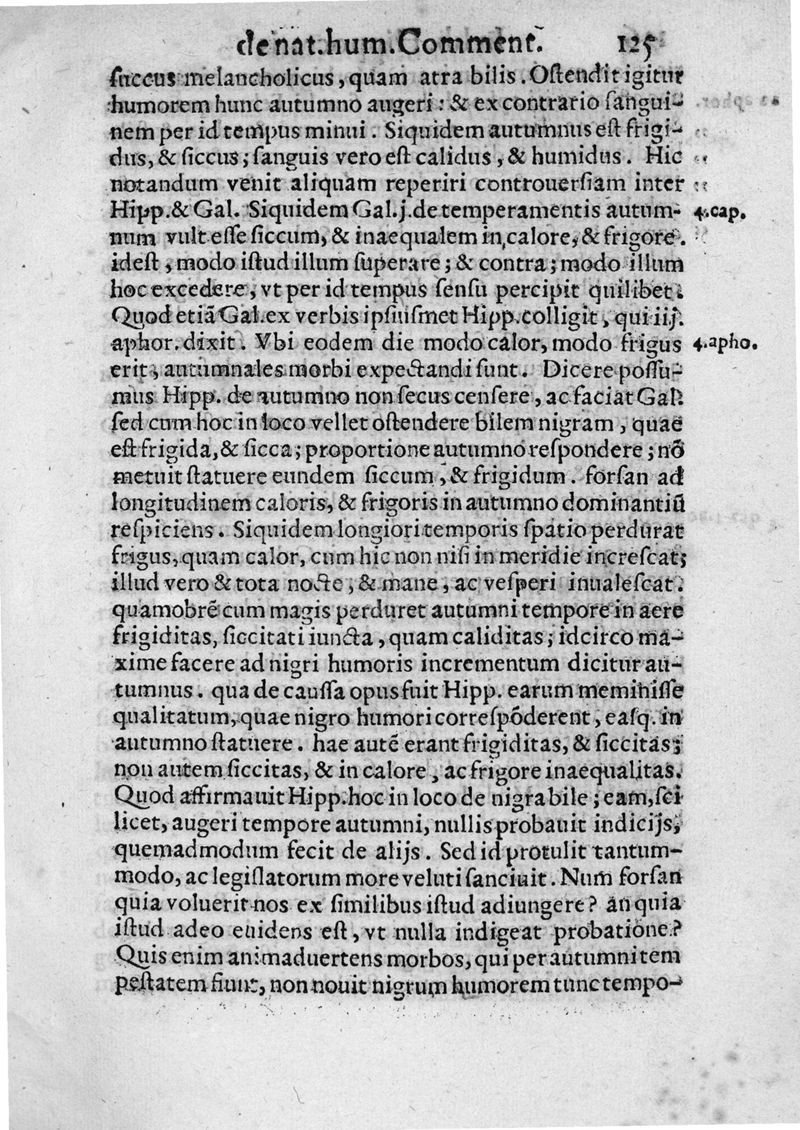 de nat. hum. Comment. 125
succus melancholicus, quam atra bilis. Ostendit igitur
humorem hunc autumno augeri: & ex contrario sangui-
nem per id tempus minui. Siquidem autumnus est frigi-
dus, & siccus; sanguis vero est calidus, & humidus. Hic
notandum venit aliquam reperiri controuersiam inter
Hipp. & Gal. Siquidem Gal. j. de temperamentis autum- 4. cap.
num vult esse siccum, & inaequalem in calore, & frigore.
idest, modo istud illum superare; & contra; modo illum
hoc excedere, vt per id tempus sensu percipit quilibet.
Quod etiā Gal. ex verbis ipsiusmet Hipp. colligit, qui iij.
aphor. dixit. Vbi eodem die modo calor, modo frigus 4. apho.
erit, autumnales morbi expectandi sunt. Dicere possu-
mus Hipp. de autumno non secus censere, ac faciat Gal.
sed cum hoc in loco vellet ostendere bilem nigram, quae
est frigida, & sicca; proportione autumno respondere; nō
metuit statuere eundem siccum, & frigidum. forsan ad
longitudinem caloris, & frigoris in autumno dominantiū
respiciens. Siquidem longiori temporis spatio perdurat
frigus, quam calor, cum hic non nisi in meridie increscat;
illud vero & tota nocte, & mane, ac vesperi inualescat.
quamobrē cum magis perduret autumni tempore in aere
frigiditas, siccitati iuncta, quam caliditas; idcirco ma-
xime facere ad nigri humoris incrementum dicitur au-
tumnus. qua de caussa opus fuit Hipp. earum meminisse
qualitatum, quae nigro humori correspōderent, easq. in
autumno statuere. hae autē erant frigiditas, & siccitas;
non autem siccitas, & in calore, ac frigore inaequalitas.
Quod affirmauit Hipp. hoc in loco de nigra bile; eam, sci
licet, augeri tempore autumni, nullis probauit indicijs,
quemadmodum fecit de alijs. Sed id protulit tantum-
modo, ac legislatorum more veluti sanciuit. Num forsan
quia voluerit nos ex similibus istud adiungere? an quia
istud adeo euidens est, vt nulla indigeat probatione?
Quis enim animaduertens morbos, qui per autumni tem
pestatem fiunt, non nouit nigrum humorem tunc tempo-